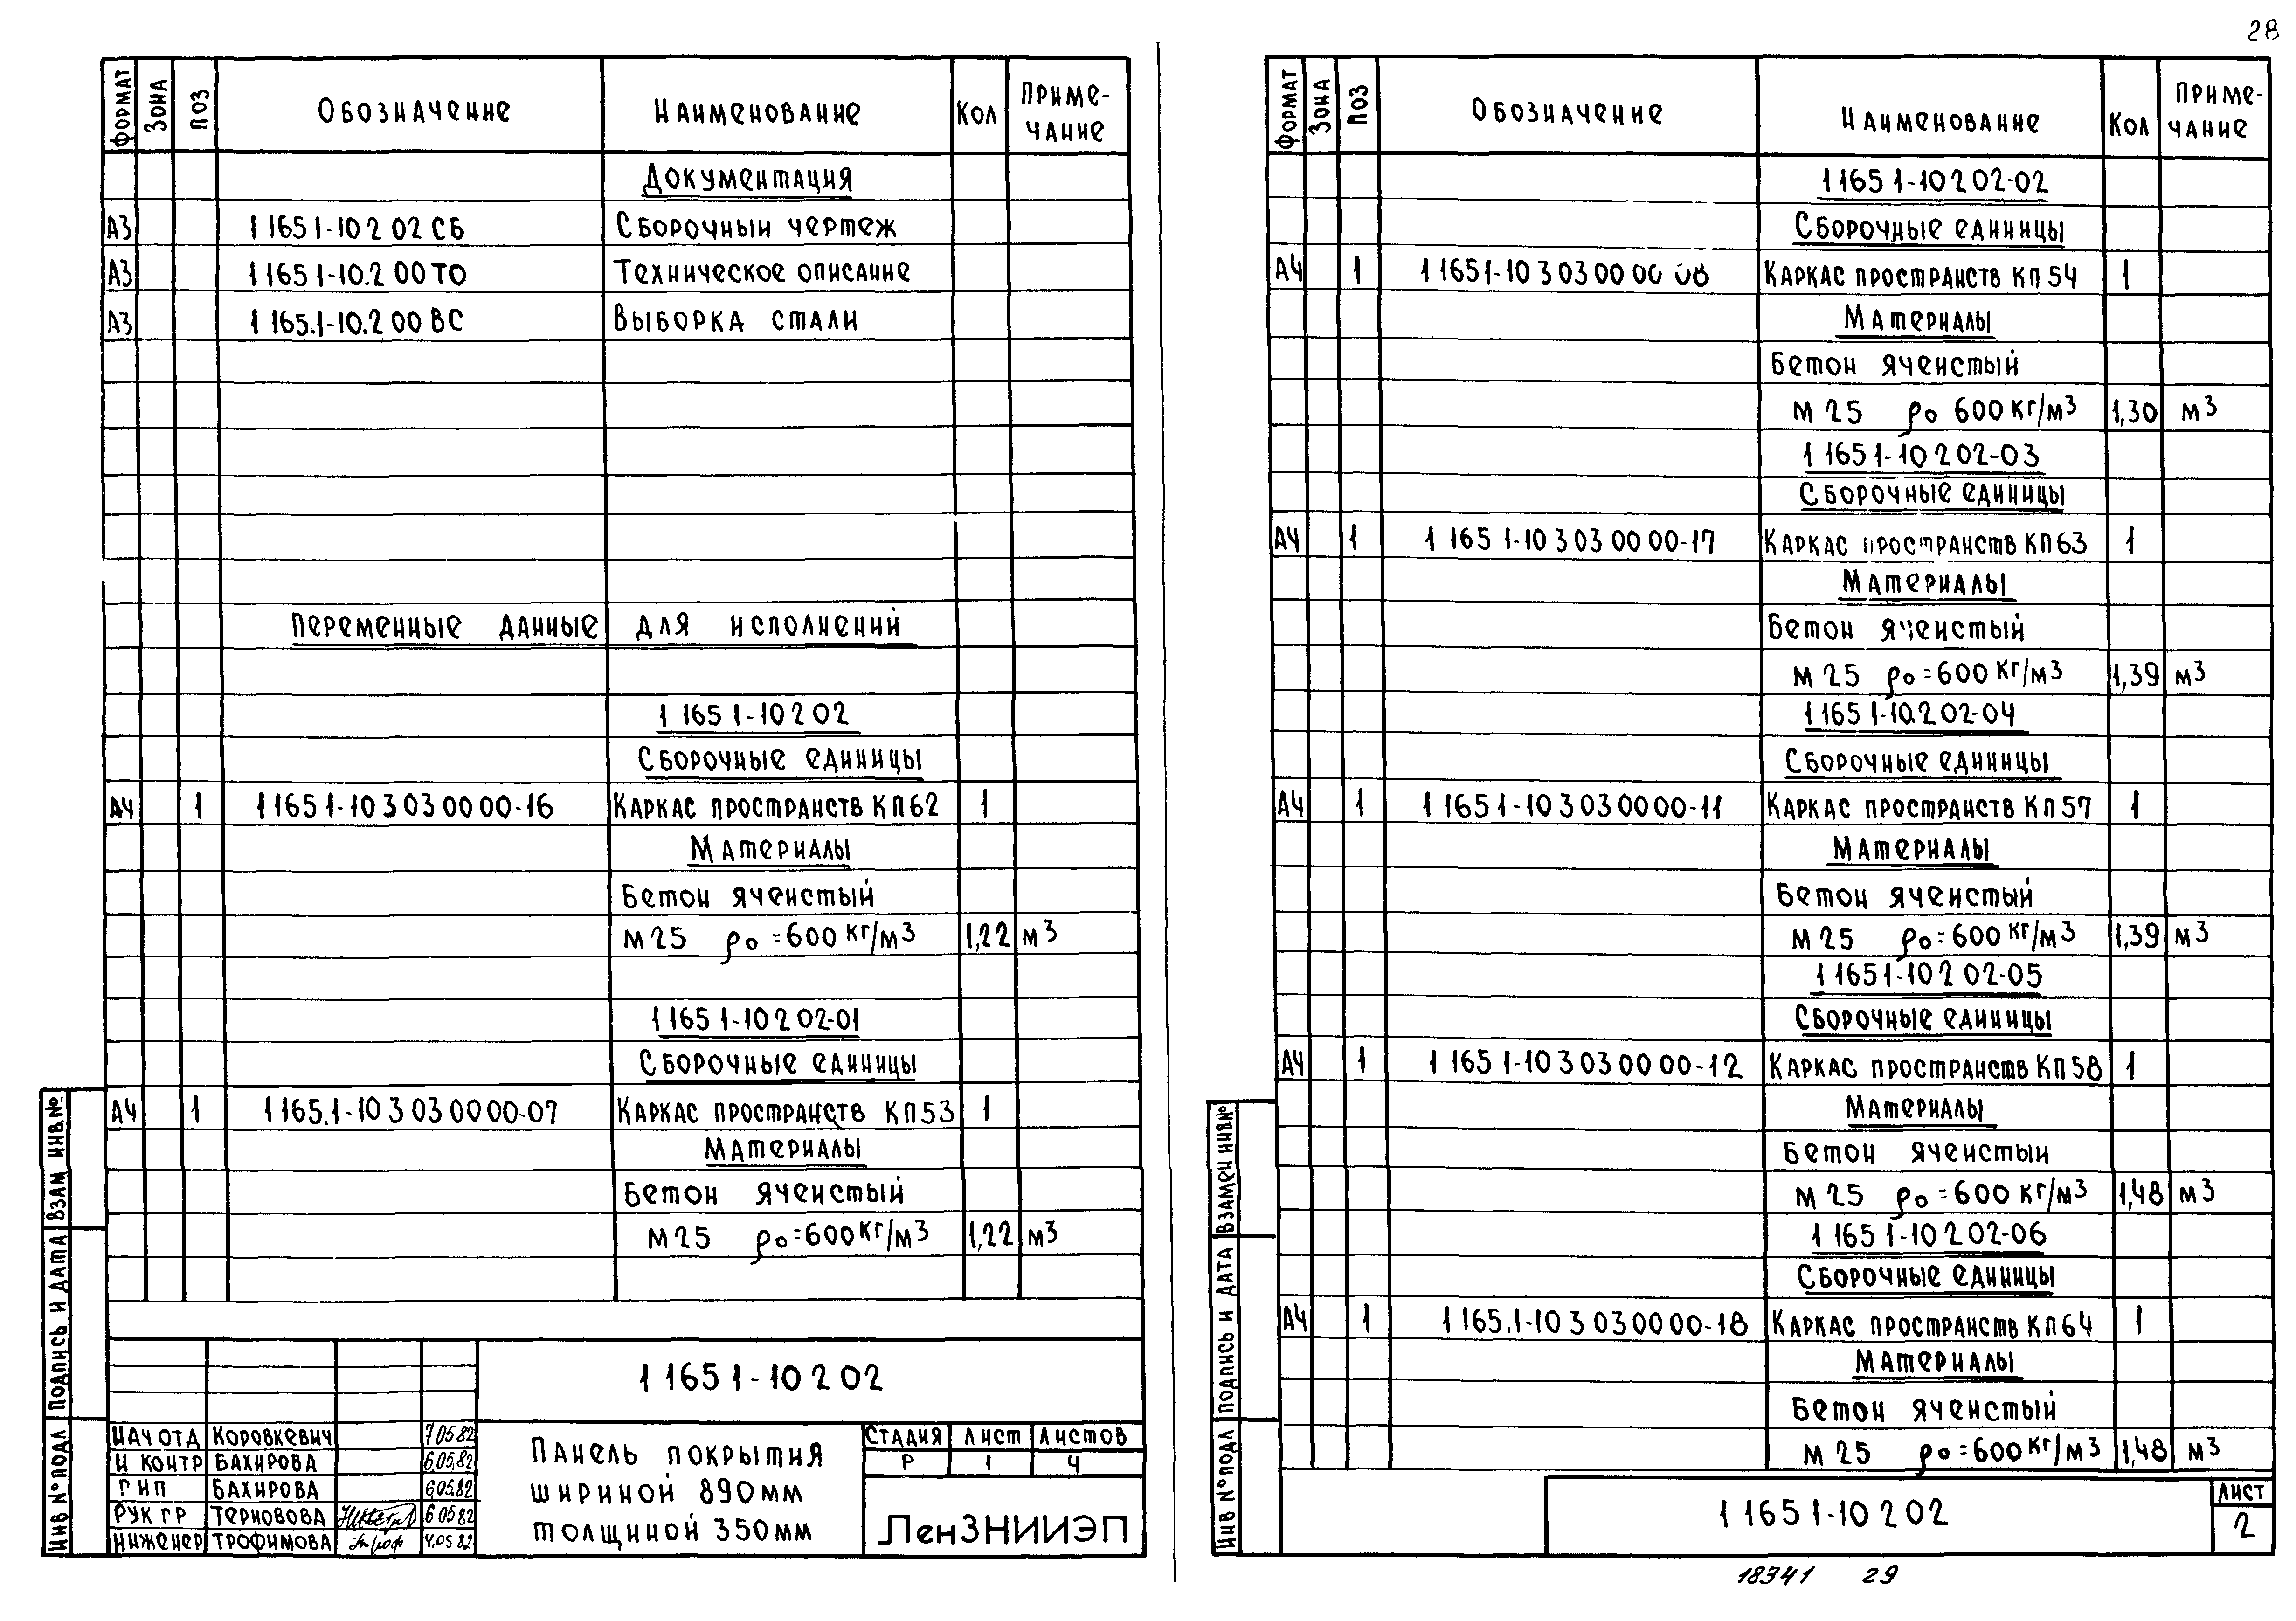 28
ФОРМАТ ЗОНА ПОЗ Обозначение Наименование Кол Приме-
чание
Документация
А3 1 165 1-10 2 02 СБ Сборочный чертеж
А3 1 165 1-10.2 00 ТО Техническое описание
А3 1 165.1-10.2 00 ВС Выборка стали
Переменные данные для исполнений
1 165 1-10 2 02
Сборочные единицы
А4 1 1 165 1-10 3 03 00 00-16 Каркас пространств КП62 1
Материалы
Бетон ячеистый
М 25 ρо=600 кг/м3 1,22 м3
1 165 1-10 2 02-01
Сборочные единицы
А4 1 1 165.1-10 3 03 00 00-07 Каркас пространств КП53 1
Материалы
Бетон ячеистый
М 25 ρо=600 кг/м3 1,22 м3
1 165 1-10 2 02
НАЧ ОТД КОРОВКЕВИЧ 7 05 82
Н КОНТР БАХИРОВА 6.05.82
ГИП БАХИРОВА 6.05.82
РУК ГР ТЕРНОВОВА 6 05 82
ИНЖЕНЕР ТРОФИМОВА 4.05 82
Панель покрытия
шириной 890 мм
толщиной 350 мм
СТАДИЯ ЛИСТ ЛИСТОВ
Р 1 4
ЛенЗНИИЭП
ИНВ № ПОДЛ ПОДПИСЬ И ДАТА ВЗАМ ИНВ.№
ФОРМАТ ЗОНА ПОЗ Обозначение Наименование Кол Приме-
чание
1 165 1-10 2 02-02
Сборочные единицы
А4 1 1 165 1-10 3 03 00 00 08 Каркас пространств КП54 1
Материалы
Бетон ячеистый
М 25 ρо 600 кг/м3 1,30 м3
1 165 1-10 2 02-03
Сборочные единицы
А4 1 1 165 1-10 3 03 00 00-17 Каркас пространств КП63 1
Материалы
Бетон ячеистый
М 25 ρо=600 кг/м3 1,39 м3
1 165 1-10.2 02-04
Сборочные единицы
А4 1 1 165 1-10 3 03 00 00-11 Каркас пространств КП57 1
Материалы
Бетон ячеистый
М 25 ρо=600 кг/м3 1,39 м3
1 165 1-10 2 02-05
Сборочные единицы
А4 1 1 165 1-10 3 03 00 00-12 Каркас пространств КП58 1
Материалы
Бетон ячеистый
М 25 ρо=600 кг/м3 1,48 м3
1 165 1-10 2 02-06
Сборочные единицы
А4 1 1 165.1-10 3 03 00 00-18 Каркас пространств КП64 1
Материалы
Бетон ячеистый
М 25 ρо=600 кг/м3 1,48 м3
1 165 1-10 2 02
ЛИСТ
2
ИНВ № ПОДЛ ПОДПИСЬ И ДАТА ВЗАМЕН ИНВ№
18341 29